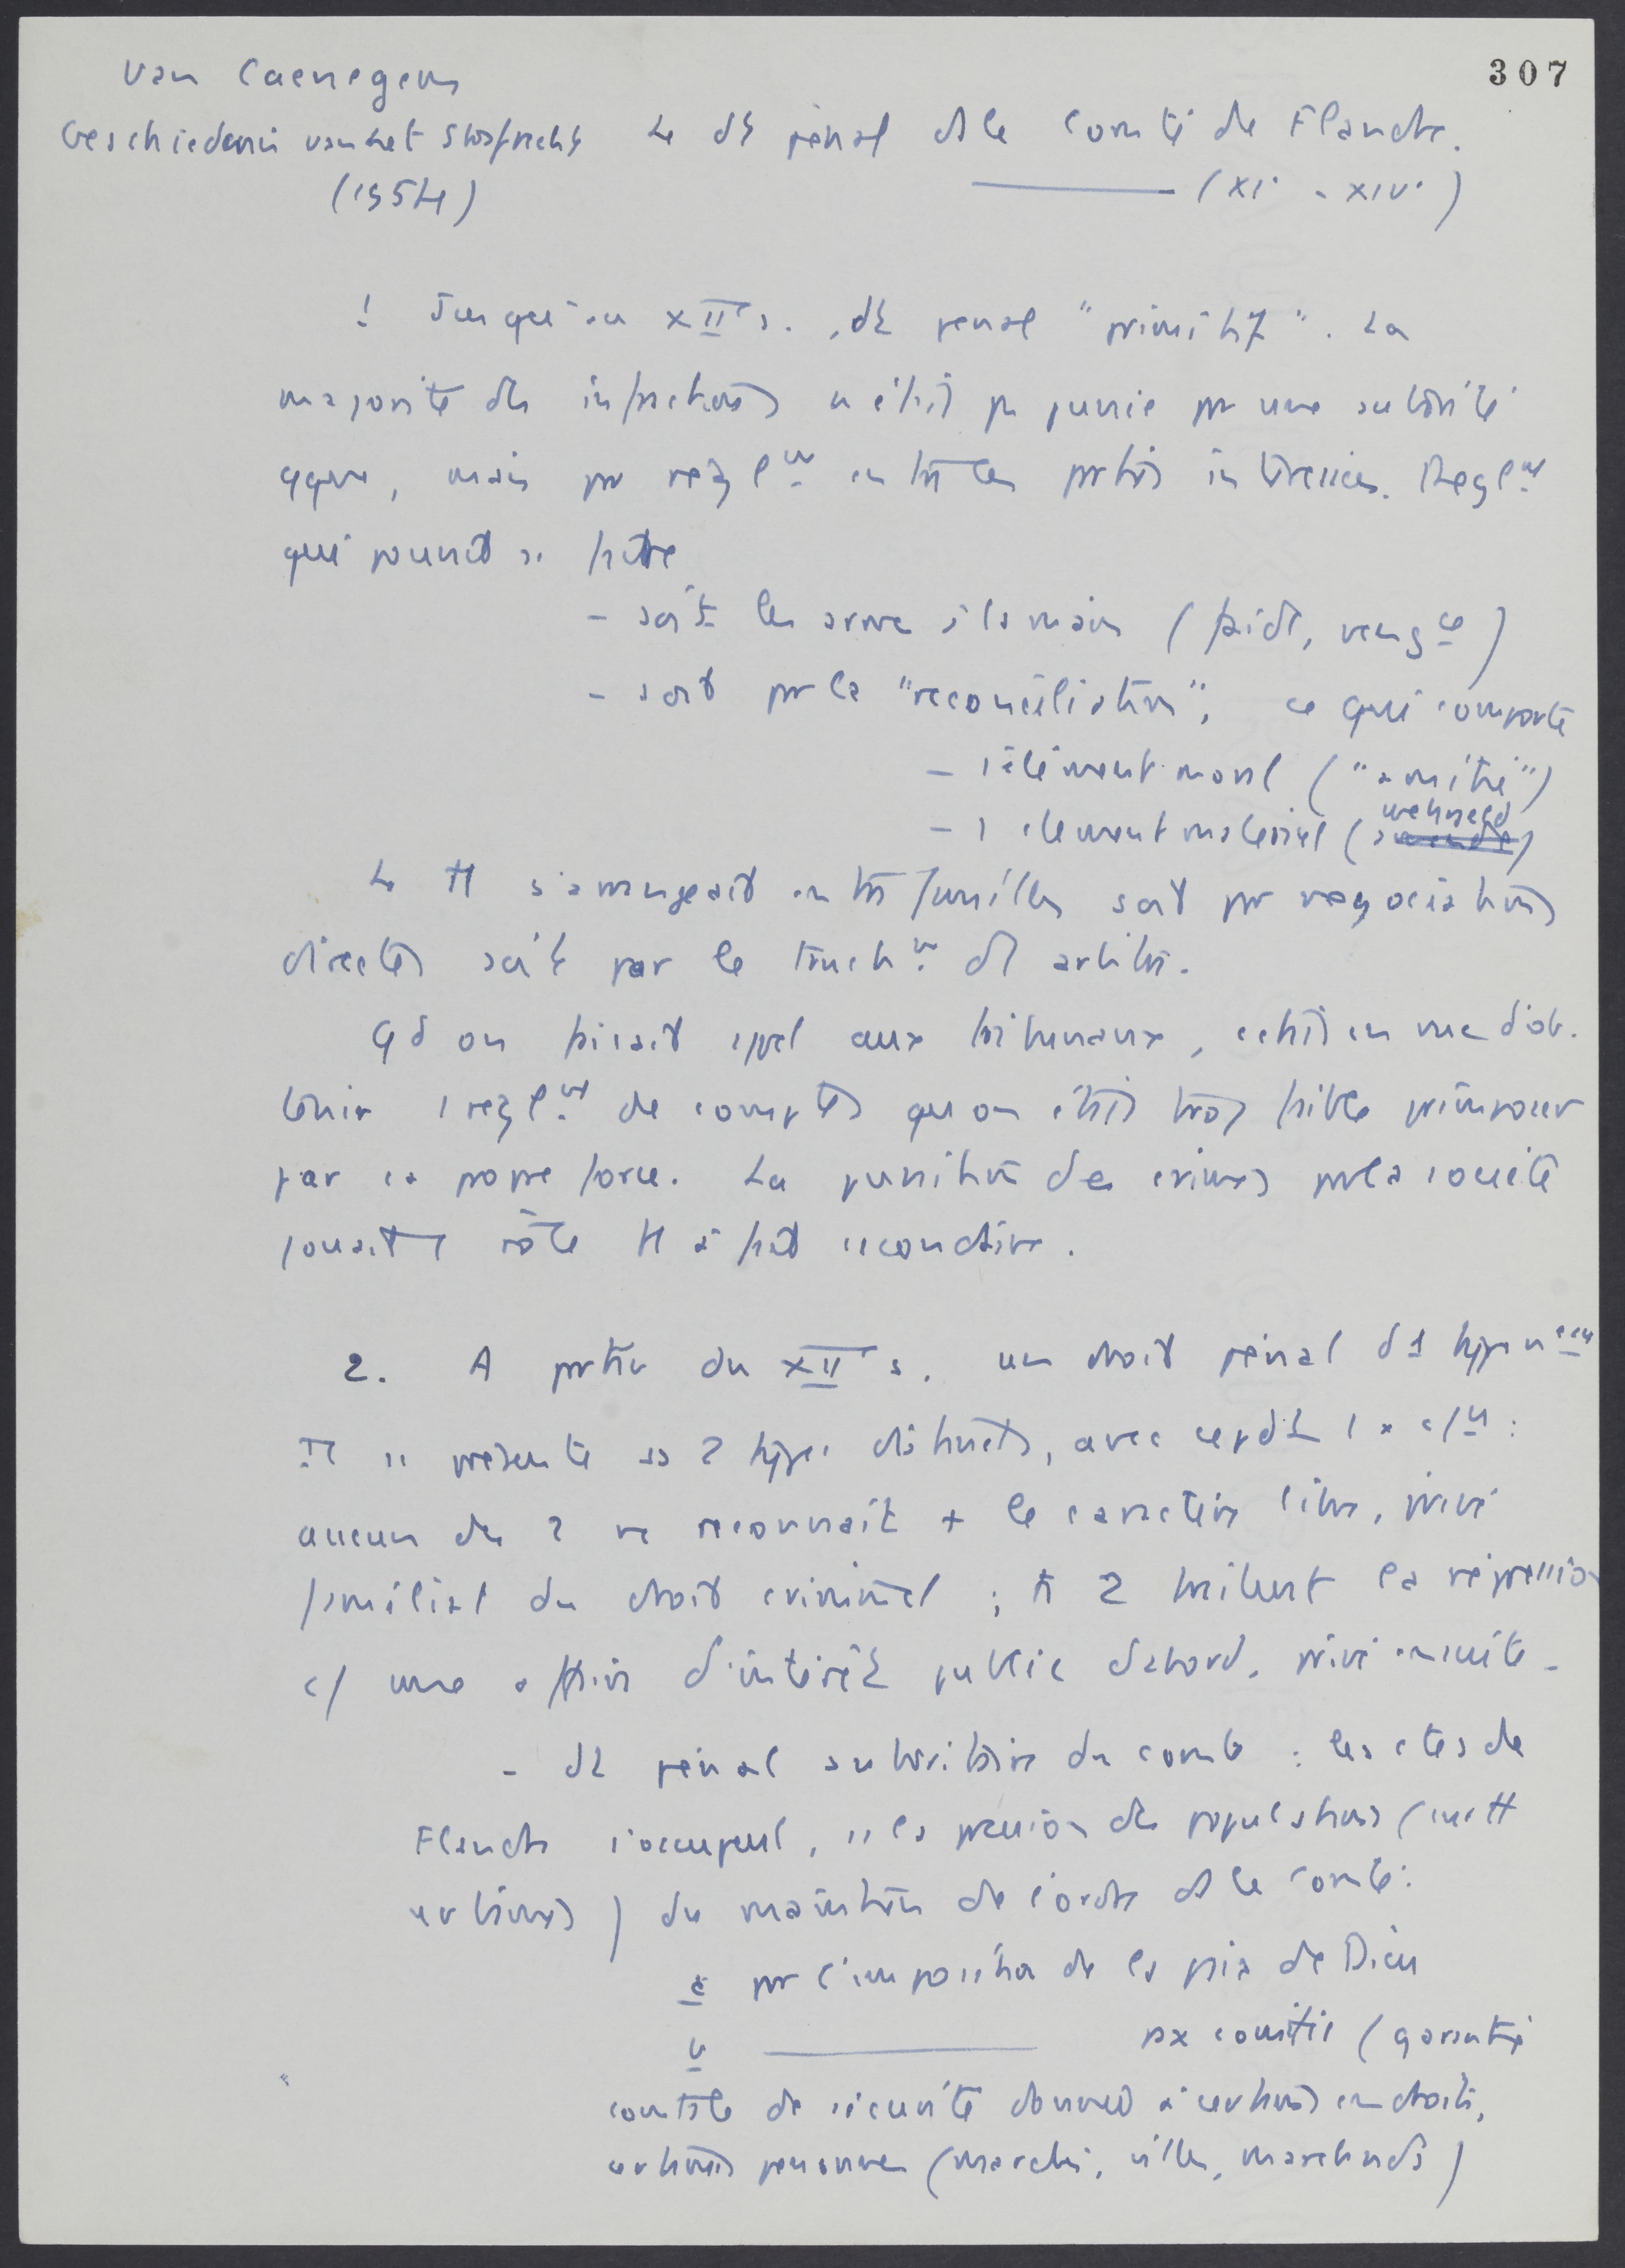 307
Van Caenegem
Geschiedenis van het Strafrecht
(1954)
Le dt pénal ds le Comté de Flandre.
(XIe - XIVe)
1 Jusqu'au XIIe s., dt penal "primitif". La
majorité des infractions n'était pas punie par une autorité
qqve, mais par règlnt entre les parties intéressées. Reglnt
qui pouvait se faire
- soit les armes à la main (faide, vengce)
- soit par la "reconciliation", ce qui comporte
- 1 élément moral ("amitié")
- 1 element materiel (amende) wehrgeld
Le tt s'arrangeait entre familles soit par negociations
directes soit par le truchnt d'arbitre.
Qd on faisait appel aux tribunaux, cétait en vue d'ob-
tenir 1 reglnt de comptes qu'on était trop faible pr imposer
par sa propre force. La punition des crimes par la société
jouait 1 rôle tt à fait secondaire.
2. A partir du XIIe s. un droit pénal d'1 type nveau
Il se présente ss 2 types distincts, avec cepdt 1 x c/n :
aucun des 2 ne reconnait + le caractère libre, privé
familial du droit criminel ; ts 2 traitent la répression
c/ une affaire d'intérêt public d'abord, privé ensuite.
- dt pénal autoritaire du comte : les ctes de
Flandre s'occupent, ss la pression des populations (surtt
urbaines) du maintien de l'ordre ds le comté :
a par l'imposition de la paix de Dieu
b ——— pax comitis (garantie
comtale de sécurité donnée à certains endroits,
certaines personnes (marchés, villes, marchands)